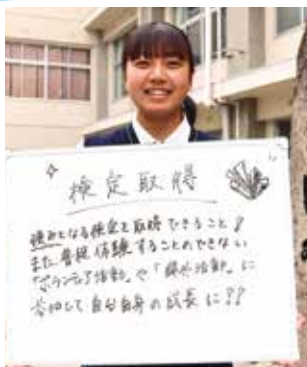 検定取得
強みとなる検定を取得できること!
また普段体験することのできない
「ボランティア活動」や「校外活動」に
参加して自分自身の成長に??